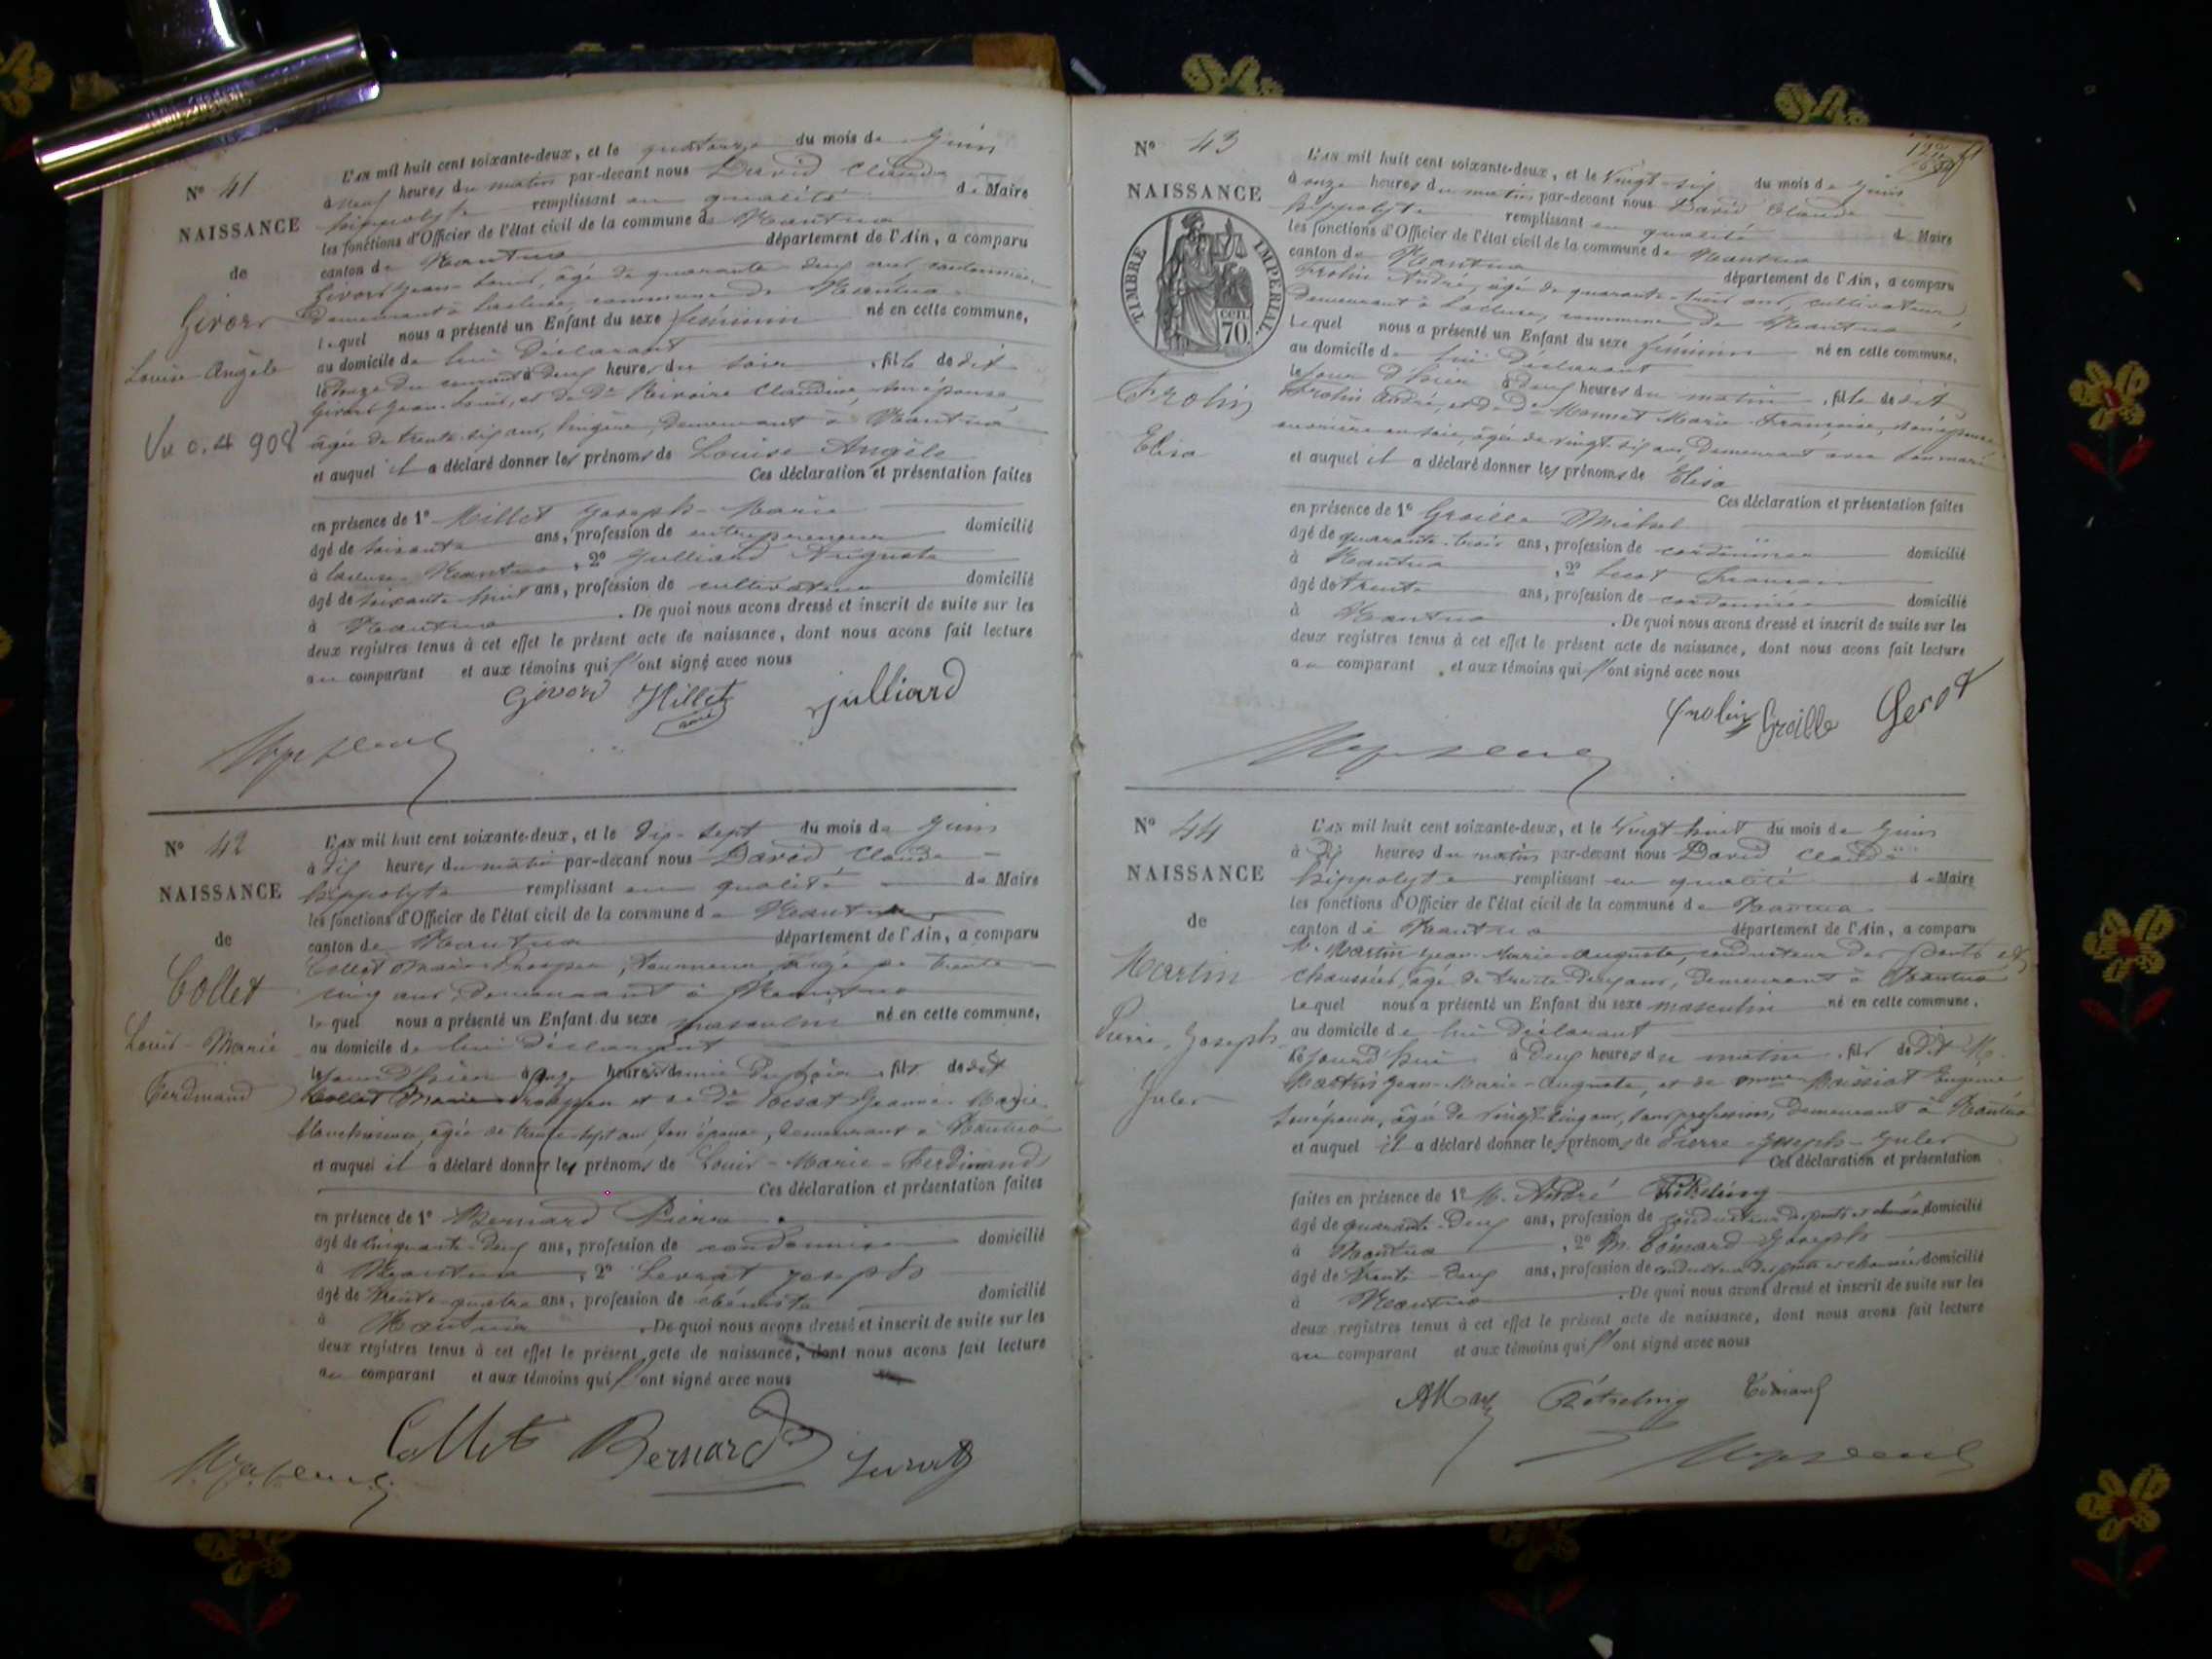 N° 41
NAISSANCE
de
Givors
Louise Angèle
L'AN mil huit cent soixante-deux, et le quatorze du mois de Juin
à neuf heures du matin par-devant nous David Claude
hippolyte remplissant en qualité de Maire
les fonctions d'Officier de l'état civil de la commune de Nantua
canton de Nantua département de l'Ain, a comparu
Givors Jean-Louis, âgé de quarante deux ans, cantonnier
demeurant à Lacluse, commune de Nantua
lequel nous a présenté un Enfant du sexe féminin né en cette commune,
au domicile de lui Déclarant
le douze du courant à deux heures du soir, fille dudit
Givors Jean-Louis, et de De Rivoire Claudine, son épouse
âgée de trente-six ans, lingère, demeurant à Nantua
et auquel il a déclaré donner les prénoms de Louise Angèle
Ces déclaration et présentation faites
en présence de 1° Millet Joseph-Marie
âgé de soixante ans, profession de entrepreneur domicilié
à Lacluse Nantua, 2° Julliard Auguste
âgé de soixante-huit ans, profession de cultivateur domicilié
à Nantua. De quoi nous avons dressé et inscrit de suite sur les
deux registres tenus à cet effet le présent acte de naissance, dont nous avons fait lecture
au comparant et aux témoins qui l'ont signé avec nous
Givors Millet julliard
N° 42
NAISSANCE
de
Collet
Louis-Marie
Ferdinand
L'AN mil huit cent soixante-deux, et le dix-sept du mois de Juin
à dix heures du matin par-devant nous David Claude
hippolyte remplissant en qualité de Maire
les fonctions d'Officier de l'état civil de la commune de Nantua
canton de Nantua département de l'Ain, a comparu
Collet Marie Prosper, tourneur, âgé de trente
cinq ans, demeurant à Nantua
lequel nous a présenté un Enfant du sexe masculin né en cette commune,
au domicile de lui Déclarant
le jour d'hier à onze heures demie du soir, fils dudit
Collet Marie Prosper et de De Jeanne Marie
blanchisseuse, âgée de trente-sept ans son épouse, demeurant à Nantua
et auquel il a déclaré donner les prénoms de Louis-Marie-Ferdinand
Ces déclaration et présentation faites
en présence de 1° Bernard Pierre
âgé de cinquante-deux ans, profession de cordonnier domicilié
à Nantua, 2° Levrat Joseph
âgé de trente-quatre ans, profession de ébéniste domicilié
à Nantua. De quoi nous avons dressé et inscrit de suite sur les
deux registres tenus à cet effet le présent acte de naissance, dont nous avons fait lecture
au comparant et aux témoins qui l'ont signé avec nous
Collet Bernard Levrat
N° 43
NAISSANCE
TIMBRE IMPERIAL.
cen.
70.
Frolin
Elisa
L'AN mil huit cent soixante-deux, et le vingt-six du mois de Juin
à onze heures du matin par-devant nous David Claude
hippolyte remplissant en qualité de Maire
les fonctions d'Officier de l'état civil de la commune de Nantua
canton de Nantua département de l'Ain, a comparu
Frolin André, âgé de quarante-trois ans, cultivateur,
demeurant à Lacluse, commune de Nantua
Lequel nous a présenté un Enfant du sexe féminin né en cette commune,
au domicile de lui Déclarant
le jour d'hier à deux heures du matin, fille dudit
Frolin André, et de De Monnet Marie Françoise, son épouse
ouvrière en soie, âgée de vingt-six ans, demeurant avec son mari
et auquel il a déclaré donner les prénoms de Elisa
Ces déclaration et présentation faites
en présence de 1° Groille Michel
âgé de quarante-trois ans, profession de cordonnier domicilié
à Nantua, 2° Français
âgé de trente ans, profession de cordonnier domicilié
à Nantua. De quoi nous avons dressé et inscrit de suite sur les
deux registres tenus à cet effet le présent acte de naissance, dont nous avons fait lecture
au comparant, et aux témoins qui l'ont signé avec nous
frolin Groille
N° 44
NAISSANCE
de
Martin
Pierre, Joseph
Jules
L'AN mil huit cent soixante-deux, et le vingt huit du mois de Juin
à dix heures du matin par-devant nous David Claude
hippolyte remplissant en qualité de Maire
les fonctions d'Officier de l'état civil de la commune de Nantua
canton de Nantua département de l'Ain, a comparu
M. Martin Jean-Marie-Auguste, conducteur des ponts et
chaussées, âgé de trente-deux ans, demeurant à Nantua
Lequel nous a présenté un Enfant du sexe masculin né en cette commune,
au domicile de lui Déclarant
le jourd'hui à deux heures du matin, fils dudit M.
Martin Jean-Marie-Auguste, et de Mme Maissiat Eugénie
son épouse, âgée de vingt-cinq ans, sans profession, demeurant à Nantua
et auquel il a déclaré donner les prénoms de Pierre-Joseph-Jules
Ces déclaration et présentation
faites en présence de 1° M. André
âgé de quarante-deux ans, profession de conducteur des ponts et chaussées domicilié
à Nantua, 2° M. Joseph
âgé de trente-deux ans, profession de conducteur des ponts et chaussées domicilié
à Nantua. De quoi nous avons dressé et inscrit de suite sur les
deux registres tenus à cet effet le présent acte de naissance, dont nous avons fait lecture
au comparant et aux témoins qui l'ont signé avec nous